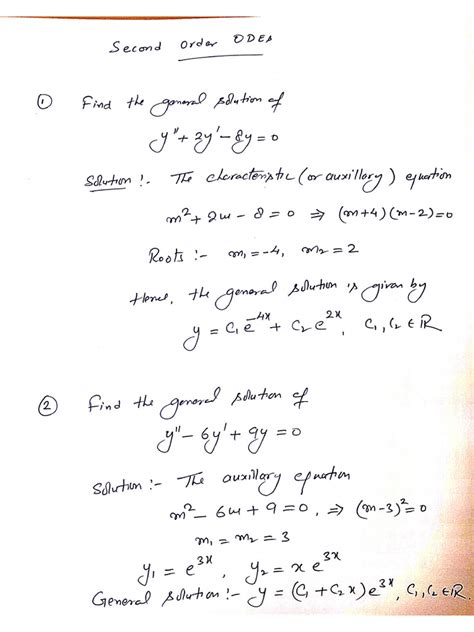 Second Order ODEs
① Find the general solution of
y'' + 2y' - 8y = 0
Solution :- The characteristic (or auxillary) equation
m² + 2m - 8 = 0 ⇒ (m+4)(m-2)=0
Roots :- m₁ = -4, m₂ = 2
Hence, the general solution is given by
y = C₁ e^{-4x} + C₂ e^{2x}, C₁, C₂ ∈ ℝ
② Find the general solution of
y'' - 6y' + 9y = 0
Solution :- The auxillary equation
m² - 6m + 9 = 0, ⇒ (m-3)² = 0
m₁ = m₂ = 3
y₁ = e^{3x}, y₂ = x e^{3x}
General solution :- y = (C₁ + C₂ x) e^{3x}, C₁, C₂ ∈ ℝ.